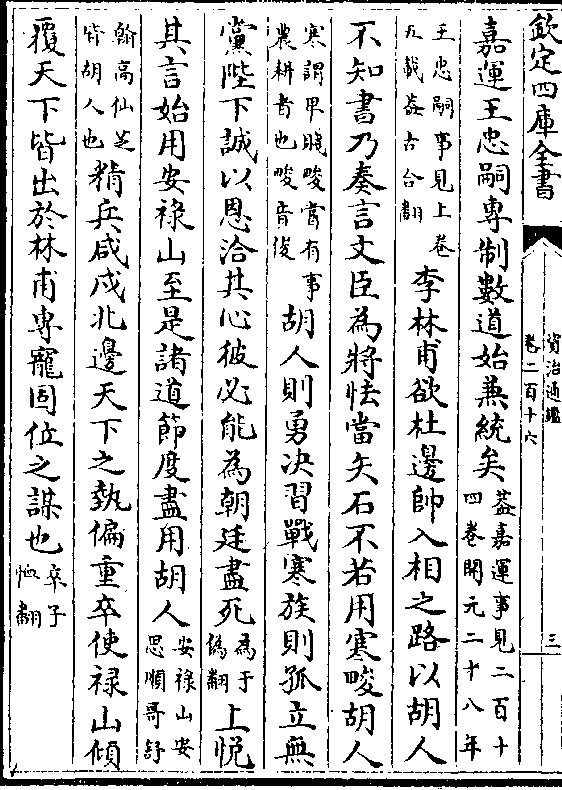 欽定四庫全書
資治通鑑
卷二百十六
三
嘉運王忠嗣專制數道始兼統矣蓋嘉運事見二百十四卷開元二十八年
王忠嗣事見上卷五載蓋古合翻李林甫欲杜邊帥入相之路以胡人
不知書乃奏言文臣為將怯當矢石不若用寒畯胡人
寒謂卑賤畯嘗有事農耕者也畯音俊胡人則勇决習戰寒族則孤立無
黨陛下誠以恩洽其心彼必能為朝廷盡死為于偽翻上悅
其言始用安禄山至是諸道節度盡用胡人安禄山安思順哥舒
翰高仙芝皆胡人也精兵咸戍北邊天下之埶偏重卒使禄山傾
覆天下皆出於林甫專寵固位之謀也卒子恤翻